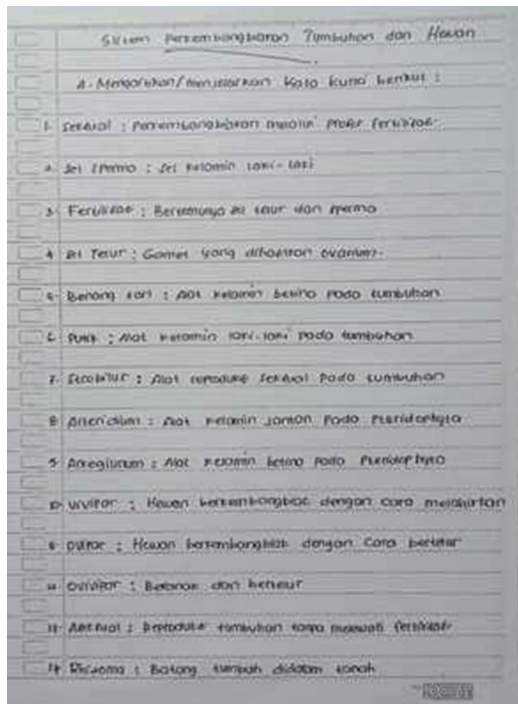 Sistem Perkembangbiakan Tumbuhan dan Hewan
A. Mengartikan/menjelaskan Kata kunci berikut :
1. Seksual : Perkembangbiakan melalui Proses fertilisasi.
2. Sel Sperma : Sel kelamin laki-laki
3. Fertilisasi : Bertemunya sel telur dan sperma
4. Sel Telur : Gamet yang dihasilkan ovarium.
5. Benang sari : Alat kelamin betina pada tumbuhan
6. Putik : Alat kelamin laki-laki pada tumbuhan
7. Strobilus : Alat reproduksi seksual pada tumbuhan
8. : Alat kelamin jantan pada Pteridophyta
9. : Alat kelamin betina pada Pteridophyta
10. Vivipar : Hewan berkembangbiak dengan cara melahirkan
: Hewan berkembangbiak dengan cara bertelur
: Beranak dan bertelur
: Reproduksi tumbuhan tanpa melewati fertilisasi
14. : Batang tumbuh didalam tanah